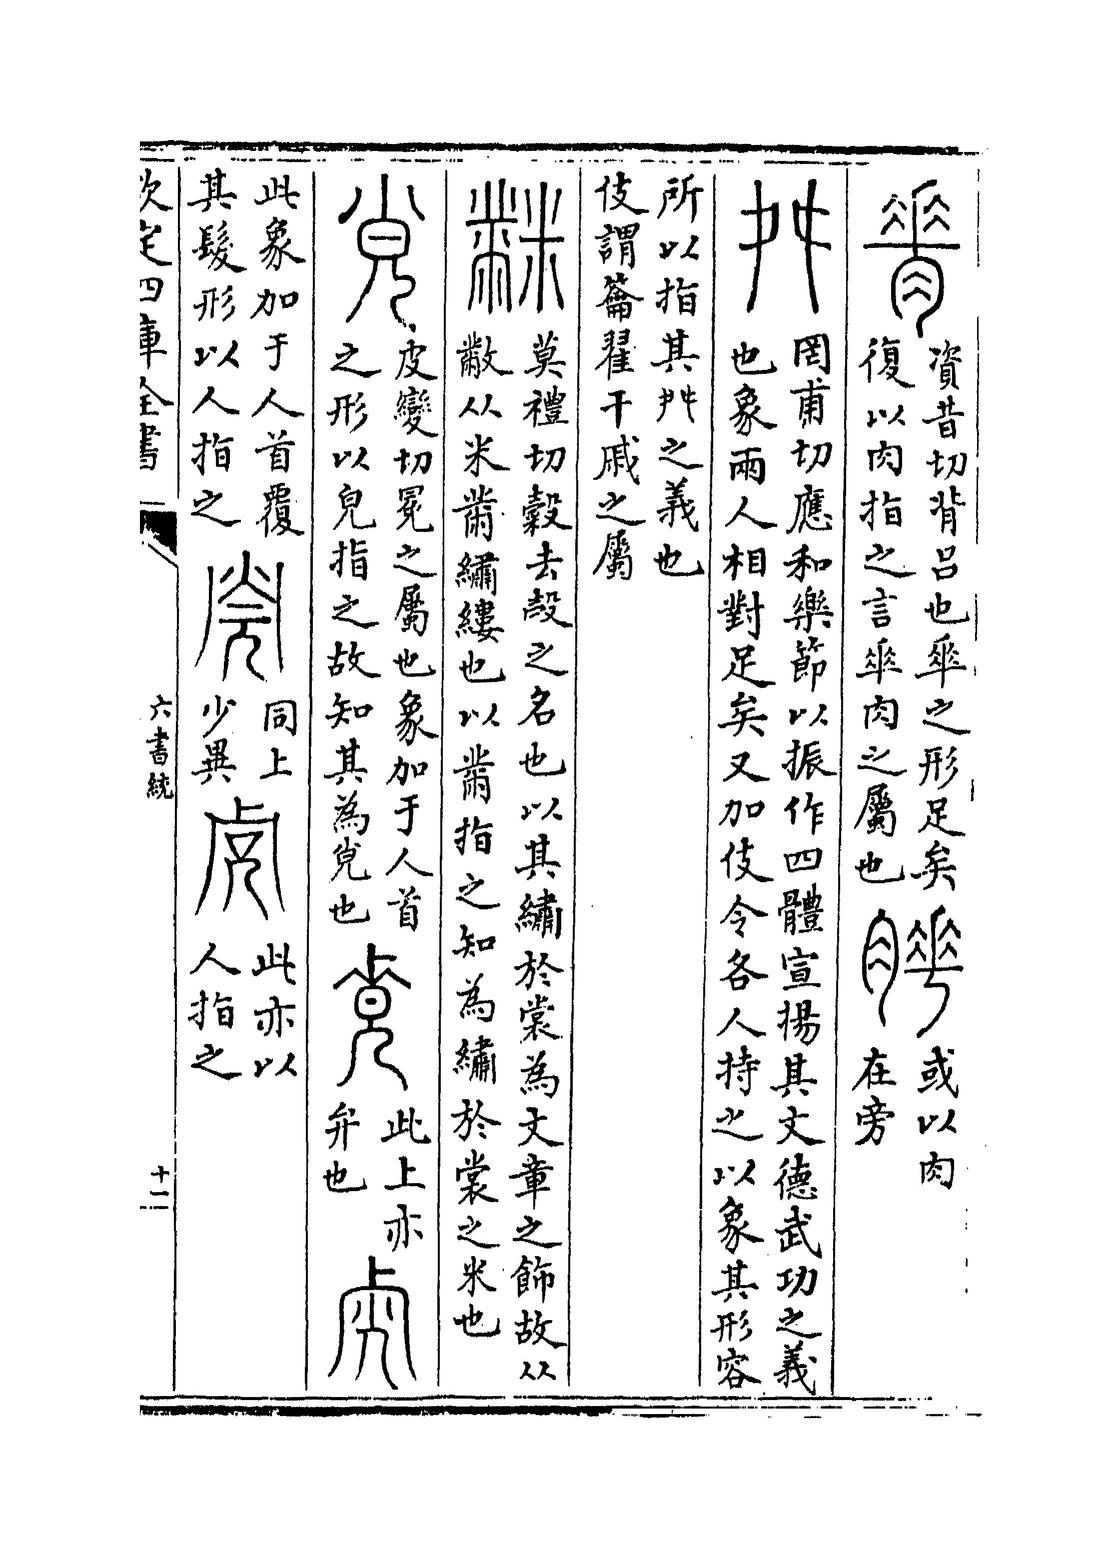 資昔切背呂也𠌶之形足矣
復以肉指之言𠌶肉之屬也
或以肉
在旁
罔甫切應和樂節以振作四體宣揚其文德武功之義
也象兩人相對足矣又加伎令各人持之以象其形容
所以指其之義也
伎謂籥翟干戚之屬
莫禮切糓去殻之名也以其繡於裳為文章之飾故从
黺从米黹繡縷也以黹指之知為繡於裳之米也
皮變切冕之屬也象加于人首
之形以皃指之故知其為覍也
此上亦
弁也
此象加于人首覆
其髮形以人指之
同上
少異
此亦以
人指之
欽定四庫全書
六書統
十一